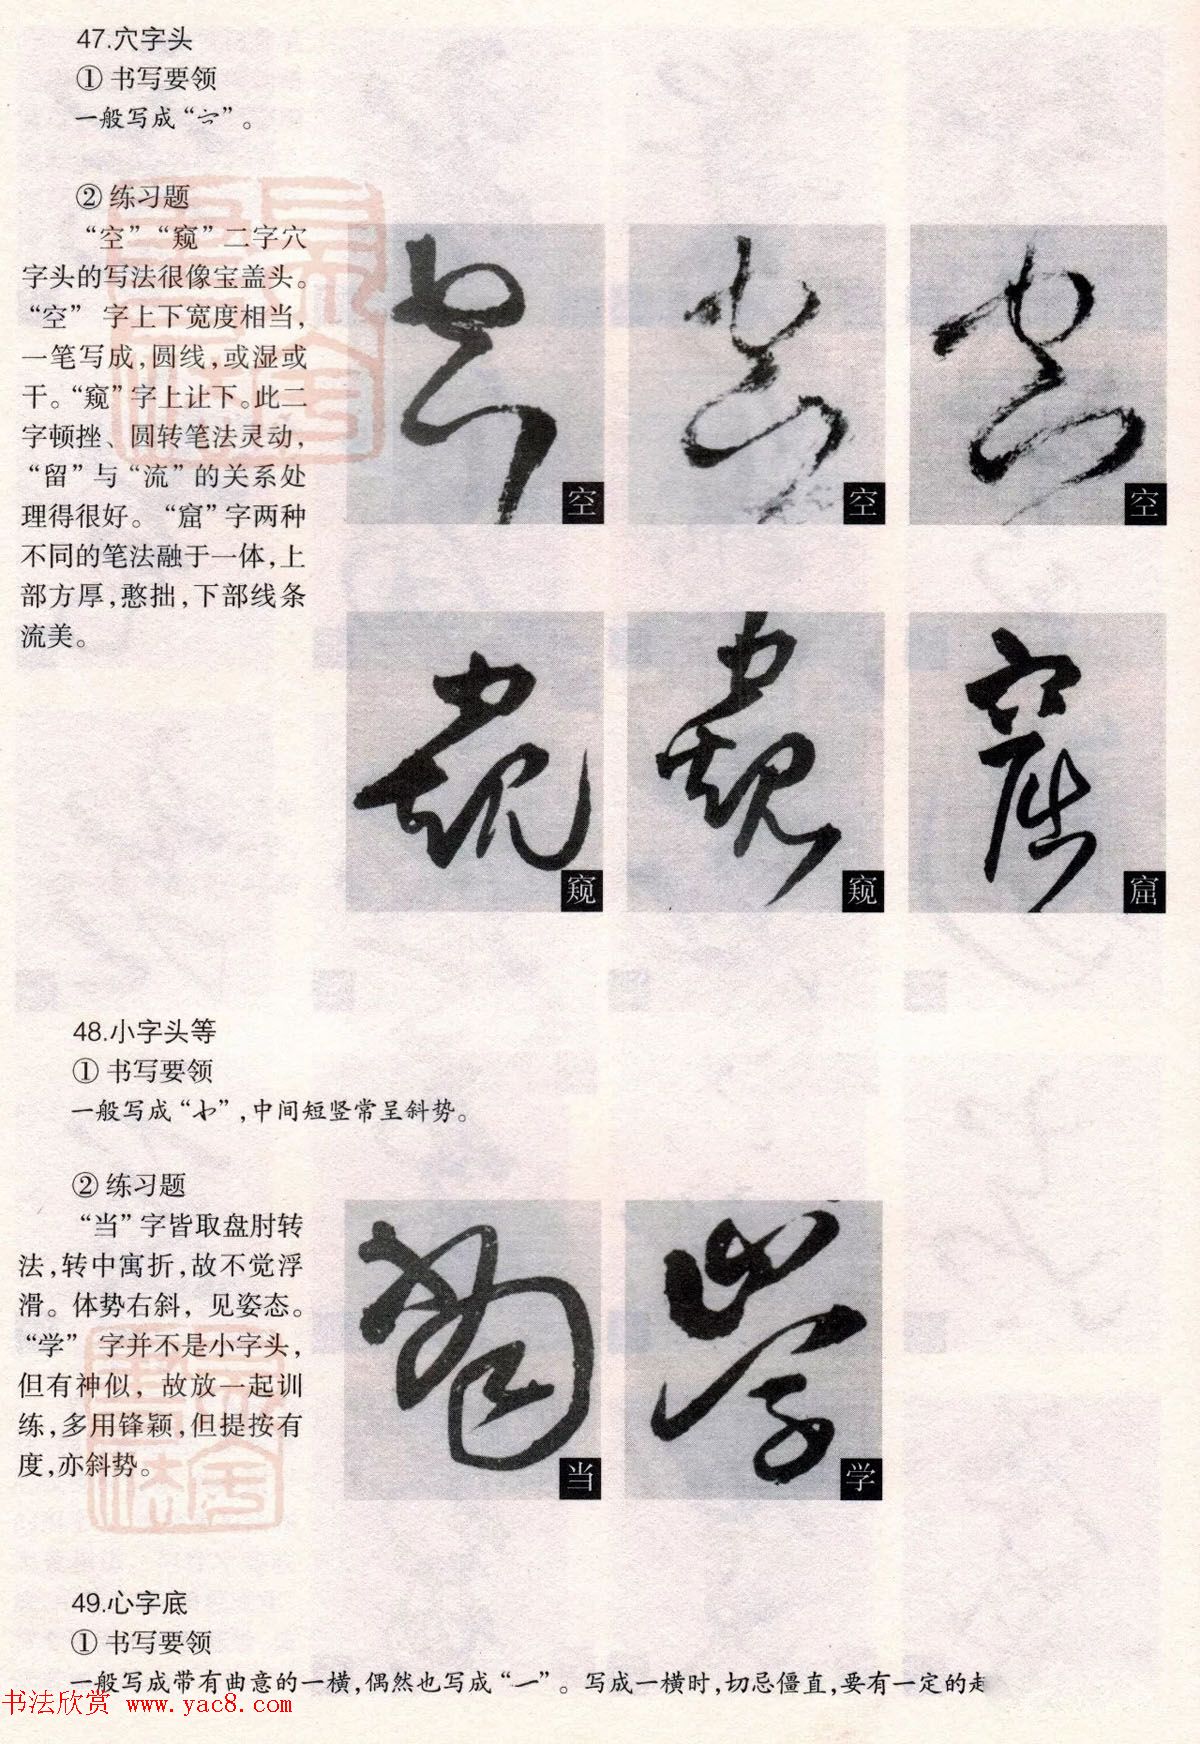 47.穴字头
① 书写要领
一般写成“宀”。
② 练习题
“空”“窥”二字穴
字头的写法很像宝盖头。
“空” 字上下宽度相当,
一笔写成,圆线,或湿或
干。“窥”字上让下。此二
字顿挫、圆转笔法灵动,
“留”与“流”的关系处
理得很好。“窟”字两种
不同的笔法融于一体,上
部方厚,憨拙,下部线条
流美。
空
空
空
窥
窥
窟
48.小字头等
① 书写要领
一般写成“”,中间短竖常呈斜势。
② 练习题
“当”字皆取盘肘转
法,转中寓折,故不觉浮
滑。体势右斜, 见姿态。
“学” 字并不是小字头,
但有神似, 故放一起训
练,多用锋颖,但提按有
度,亦斜势。
当
学
49.心字底
① 书写要领
一般写成带有曲意的一横,偶然也写成“”。写成一横时,切忌僵直,要有一定的走
书法欣赏 www.yac8.com